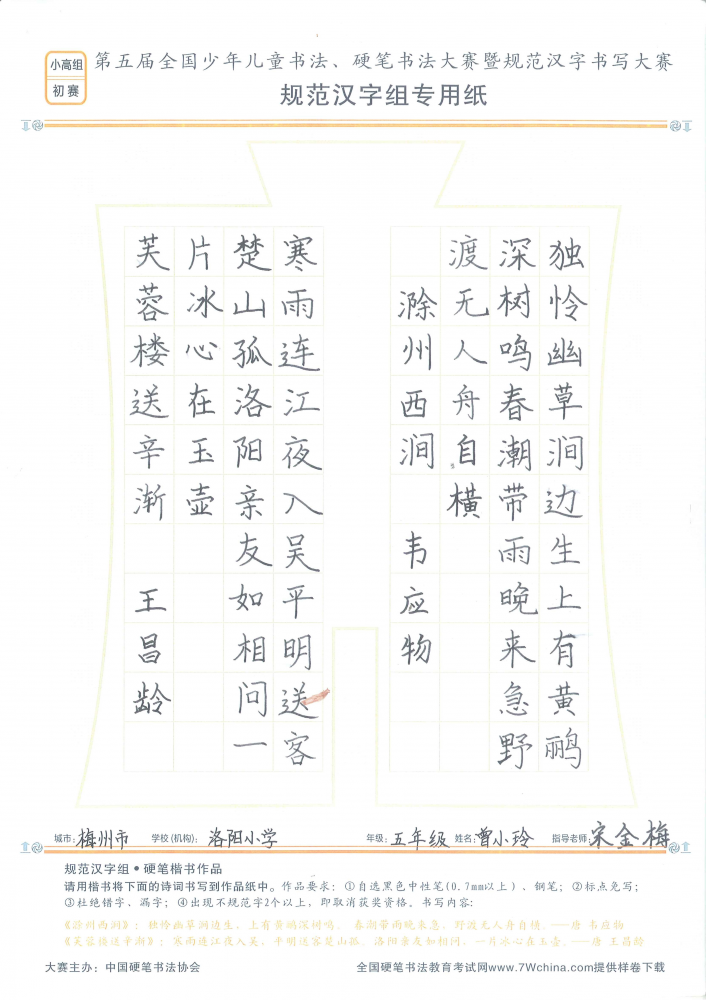 小高组
初赛
第五届全国少年儿童书法、硬笔书法大赛暨规范汉字书写大赛
规范汉字组专用纸
独怜幽草涧边生上有黄鹂
深树鸣春潮带雨晚来急野
渡无人舟自横
滁州西涧 韦应物
寒雨连江夜入吴平明送客
楚山孤洛阳亲友如相问一
片冰心在玉壶
芙蓉楼送辛渐 王昌龄
城市：梅州市 学校(机构)：洛阳小学 年级：五年级 姓名：曾小玲 指导老师：宋金梅
规范汉字组•硬笔楷书作品
请用楷书将下面的诗词书写到作品纸中。作品要求：①自选黑色中性笔(0.7mm以上)、钢笔；②标点免写；
③杜绝错字、漏字；④出现不规范字2个以上，即取消获奖资格。书写内容：
《滁州西涧》：独怜幽草涧边生，上有黄鹂深树鸣。春潮带雨晚来急，野渡无人舟自横。——唐 韦应物
《芙蓉楼送辛渐》：寒雨连江夜入吴，平明送客楚山孤。洛阳亲友如相问，一片冰心在玉壶。——唐 王昌龄
大赛主办：中国硬笔书法协会
全国硬笔书法教育考试网www.7Wchina.com提供样卷下载